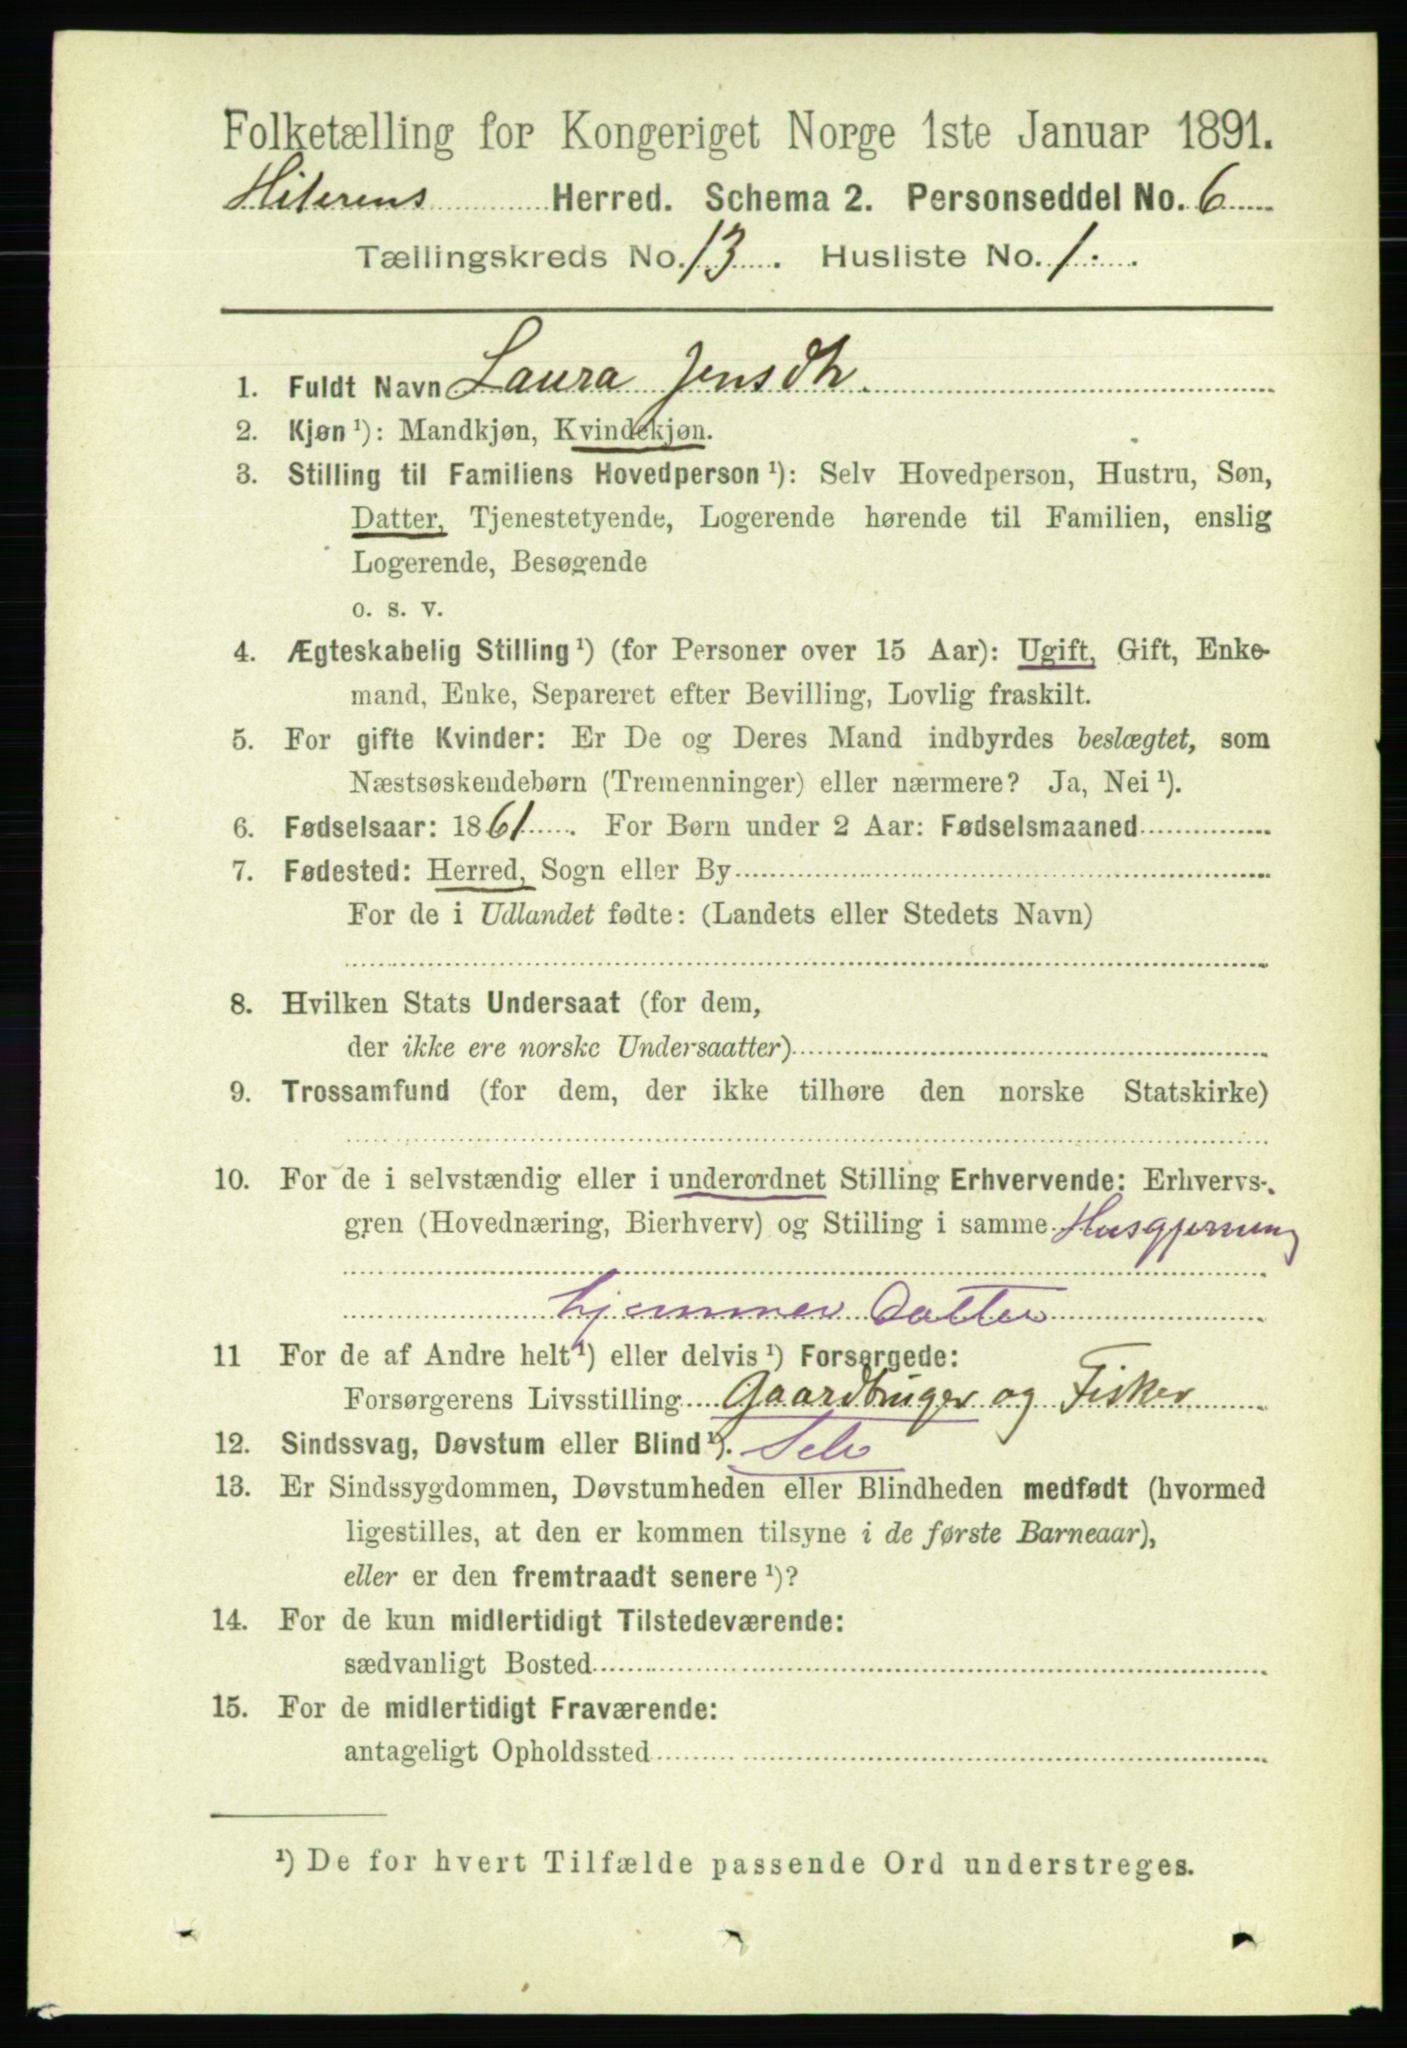 Folketælling for Kongeriget Norge 1ste Januar 1891.
Hiterens Herred. Schema 2. Personseddel No. 6
Tællingskreds No. 13. Husliste No. 1.
1. Fuldt Navn Laura Jensdtr.
2. Kjøn ¹): Mandkjøn, Kvindekjøn.
3. Stilling til Familiens Hovedperson ¹): Selv Hovedperson, Hustru, Søn,
Datter, Tjenestetyende, Logerende hørende til Familien, enslig
Logerende, Besøgende
o. s. v.
4. Ægteskabelig Stilling ¹) (for Personer over 15 Aar): Ugift, Gift, Enke-
mand, Enke, Separeret efter Bevilling, Lovlig fraskilt.
5. For gifte Kvinder: Er De og Deres Mand indbyrdes beslægtet, som
Næstsøskendebørn (Tremenninger) eller nærmere? Ja, Nei ¹).
6. Fødselsaar: 1861. For Børn under 2 Aar: Fødselsmaaned
7. Fødested: Herred, Sogn eller By
For de i Udlandet fødte: (Landets eller Stedets Navn)
8. Hvilken Stats Undersaat (for dem,
der ikke ere norske Undersaatter)
9. Trossamfund (for dem, der ikke tilhøre den norske Statskirke)
10. For de i selvstændig eller i underordnet Stilling Erhvervende: Erhvervs-
gren (Hovednæring, Bierhverv) og Stilling i samme Husgjerning
hjemmev Datter
11 For de af Andre helt ¹) eller delvis ¹) Forsørgede:
Forsørgerens Livsstilling Gaardbruger og Fisker
12. Sindssvag, Døvstum eller Blind ¹). Selv
13. Er Sindssygdommen, Døvstumheden eller Blindheden medfødt (hvormed
ligestilles, at den er kommen tilsyne i de første Barneaar),
eller er den fremtraadt senere ¹)?
14. For de kun midlertidigt Tilstedeværende:
sædvanligt Bosted
15. For de midlertidigt Fraværende:
antageligt Opholdssted
¹) De for hvert Tilfælde passende Ord understreges.